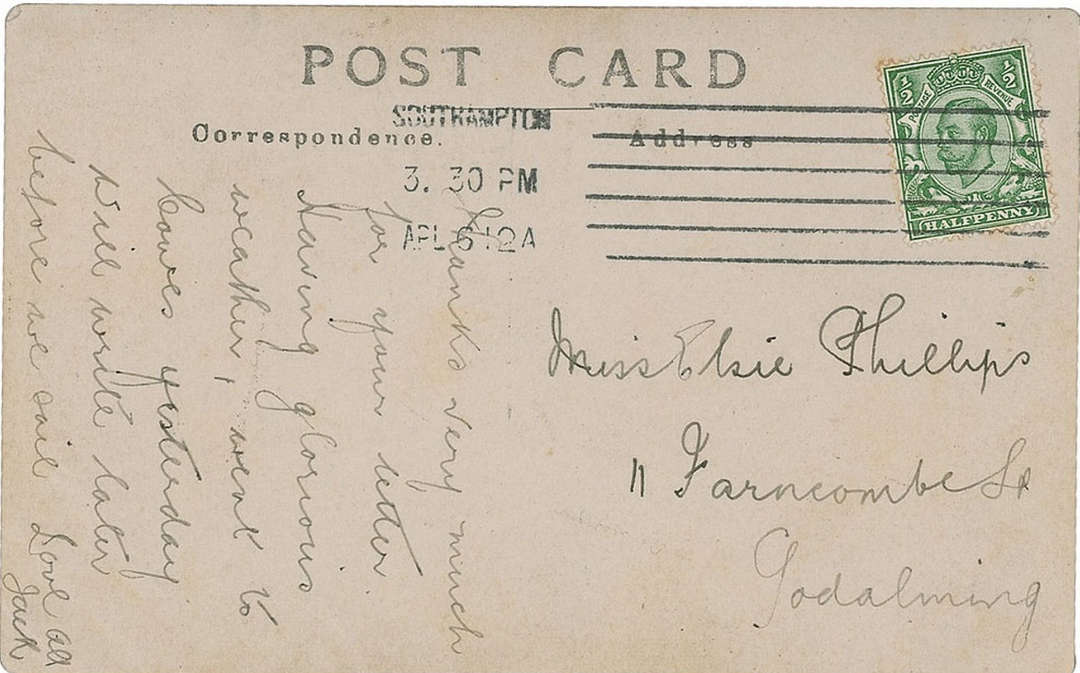 POST CARD
Correspondence.
Address
SOUTHAMPTON
3. 30 PM
APL 6 12 A
½ POSTAGE REVENUE ½
HALFPENNY
Thanks very much
for your letter
Having glorious
weather, went to
Cowes yesterday
Will write later
before we sail Love all
Jack
Miss Elsie Phillips
11 Farncombe St
Godalming